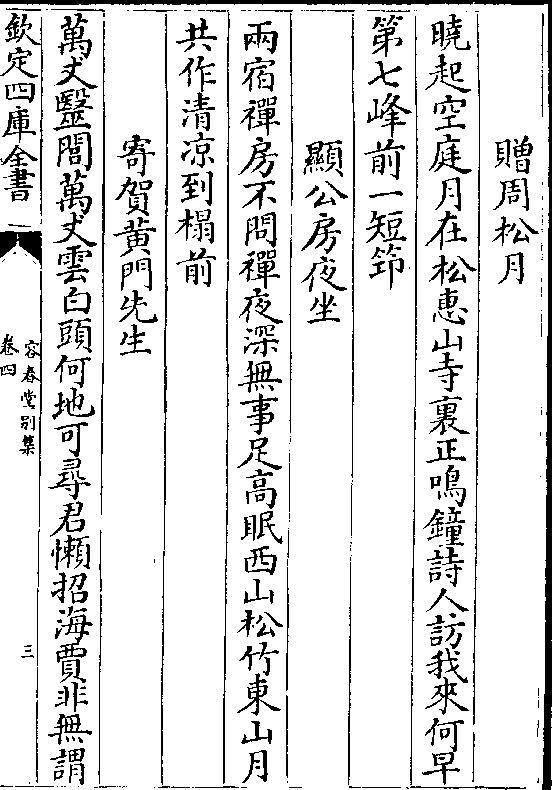 贈周松月
曉起空庭月在松惠山寺裏正鳴鐘詩人訪我來何早
第七峰前一短笻
顯公房夜坐
兩宿禪房不問禪夜深無事足高眠西山松竹東山月
共作清凉到榻前
寄賀黄門先生
萬丈毉閭萬丈雲白頭何地可尋君懶招海賈非無謂
欽定四庫全書
容春堂別集
卷四
三